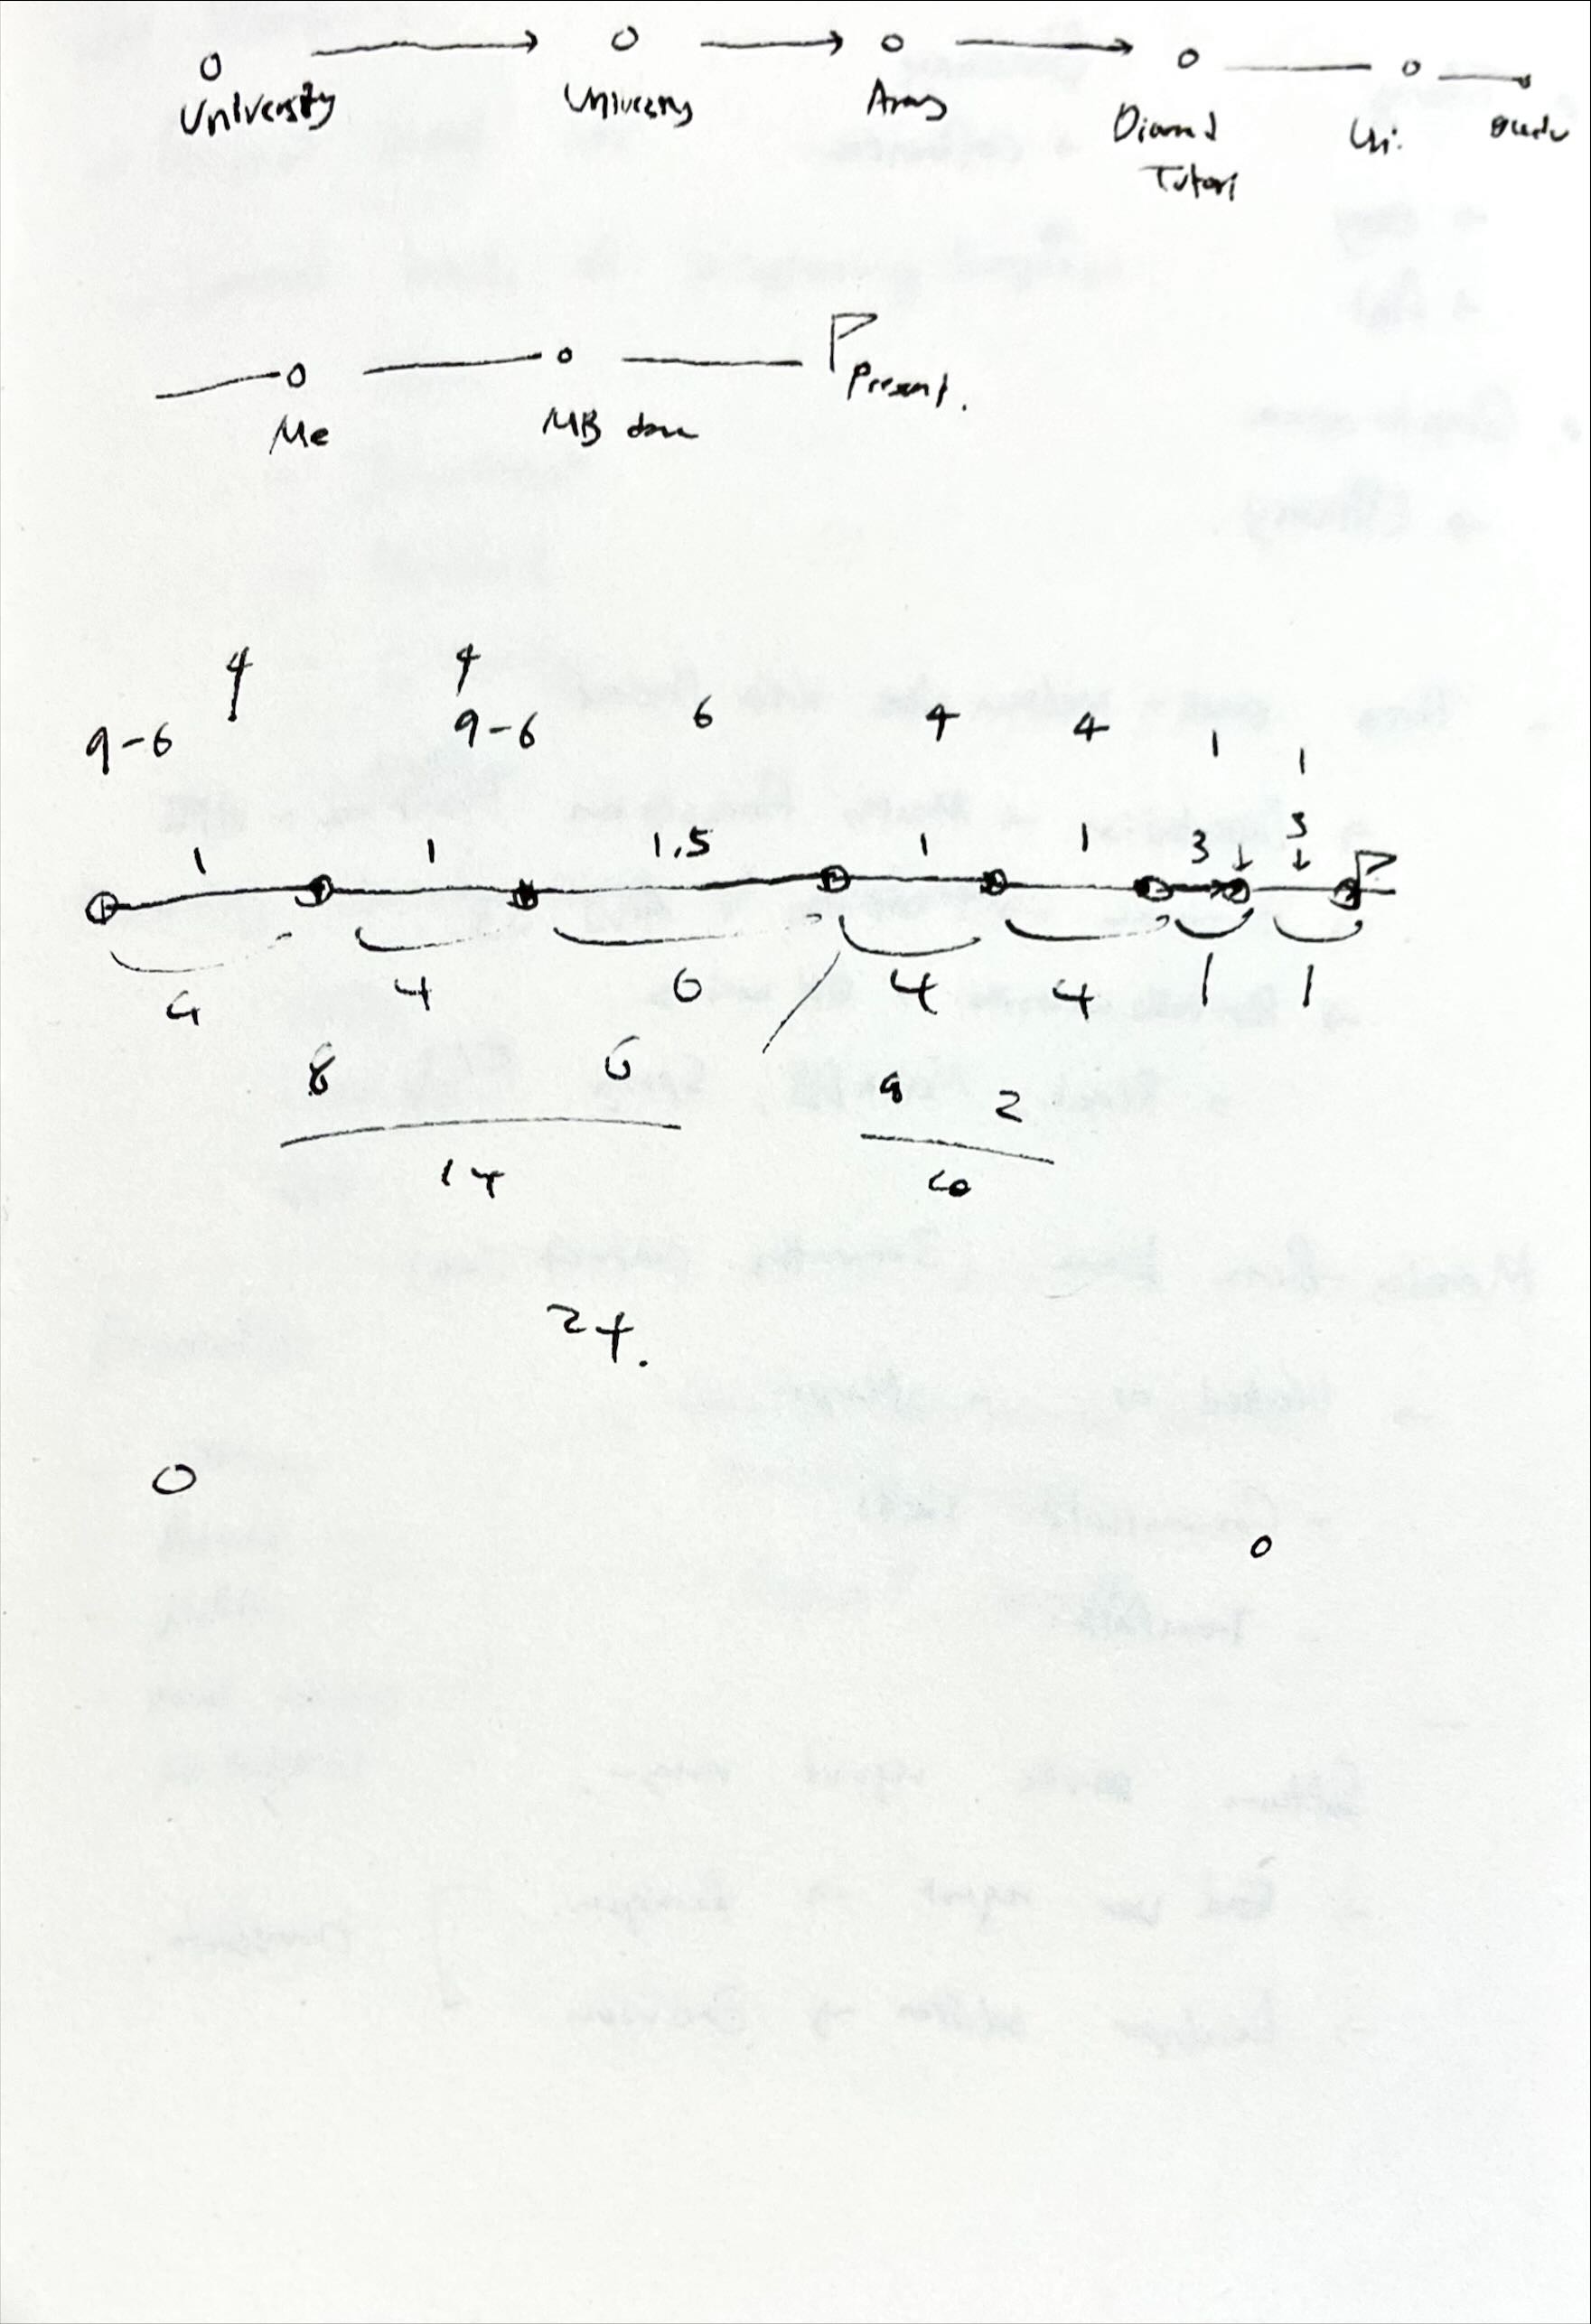 University University Army Diamond Uni.
Tutori
Me MB done Present.
4 4
9-6 9-6 6 4 4 1 1
1 1 1.5 1 1 3 3
4 4 6 4 4 1 1
8 6 8 2
14 10
24.